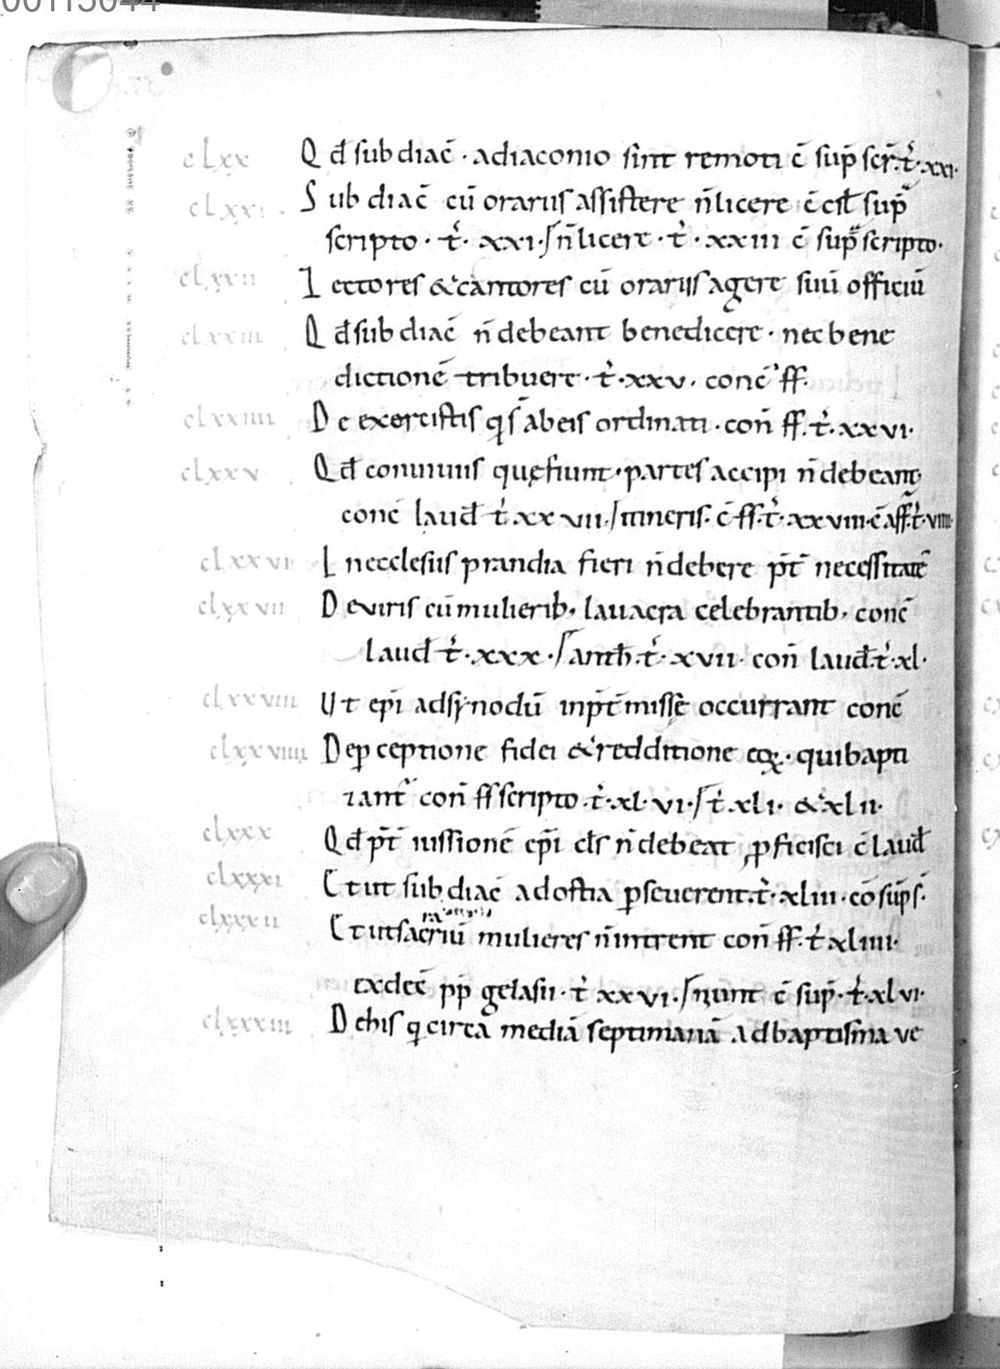 00115044
clxx Qđ subdiac̄ · adiaconio sint remoti c̄ sup̄ scr̄. t̄ · xxi ·
clxxi . Sub diac̄ cū orariis assistere n̄ licere c̄ cił sup̄
scripto · t̄ · xxi · / n̄ licere · t̄ · xxiii c̄ sup̄ scripto ·
clxxii Lectores & cantores cū orariis agere suū officiū
clxxiii Qđ sub diac̄ n̄ debeant benedicere · nec bene
dictionē tribuere · t̄ · xxv · conc̄ ff.
clxxiiii De exorcistis q̄ s̄ ab eis ordinati · con̄ ff. t̄ · xxvi ·
clxxv Qđ conuiuiis quę fiunt · partes accipi n̄ debeant
conc̄ lauđ t̄ xxvii · / itineris · c̄ ff. t̄ · xxviii · c̄ aff. t̄ · viiii
clxxvi In ecclesiis prandia fieri n̄ debere p̄t necessitatē
clxxvii De uiris cū mulierib; lauacra celebrantib; conc̄
lauđ t̄ · xxx · / anth̄ · t̄ · xvii · con̄ lauđ · t̄ · xl ·
clxxviii Ut ep̄i adsynodū inp̄t missē occurrant conc̄
clxxviiii De p̄ceptione fidei & redditione eoꝝ · qui bapti
zant̄ con̄ ff scripto · t̄ · xl · vi · / t̄ · xli · & xlii ·
clxxx Qđ p̄t iussionē ep̄i cl̄s n̄ debeat ꝓficisci c̄ lauđ
clxxxi Et ut sub diac̄ ad ostia ꝑseuerent · t̄ · xliii · cō sup̄ s̄ ·
clxxxii Et ut sacriū mulieres n̄ intrent con̄ ff. t̄ xliiii ·
ex dec̄ pp̄ gelasii · t̄ xxvi · / nunt c̄ sup̄ · t̄ · xl vi ·
clxxxiii De his q̄ circa mediā septimanā ad baptisma ve